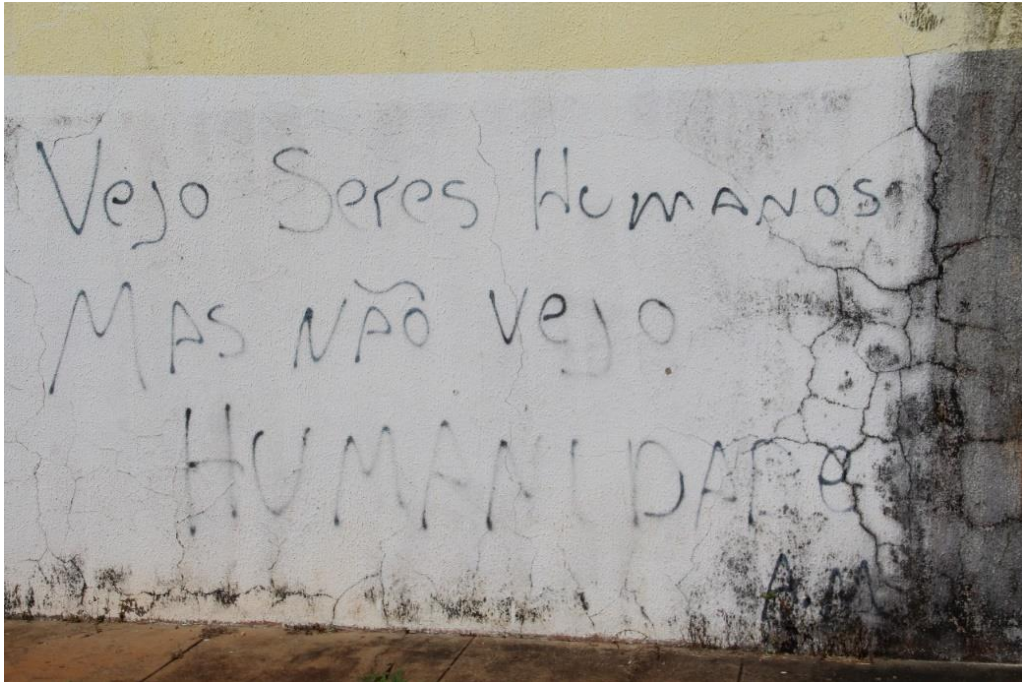 Vejo Seres Humanos
Mas não vejo
HUMANIDADe
A.M